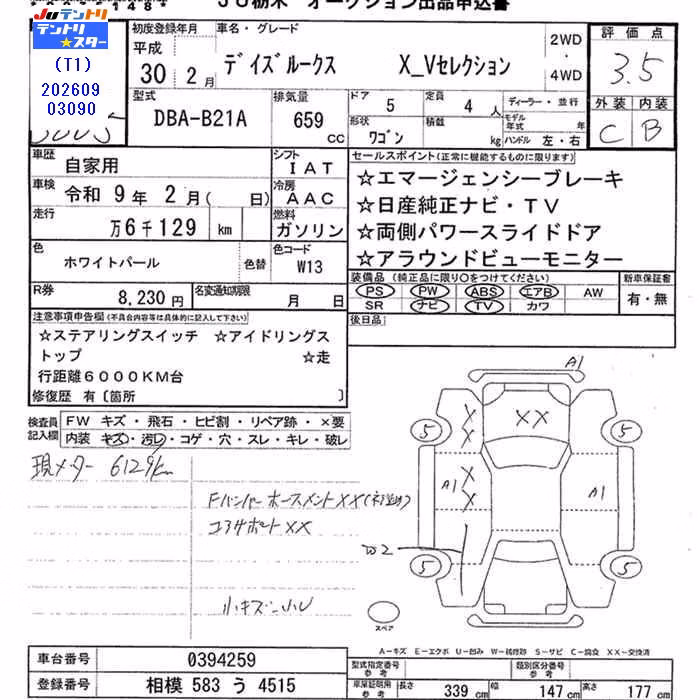 JU栃木 オークション出品申込書
JUテントリ
テントリ
☆スター
(T1)
202609
03090
初度登録年月
平成
30年 2月
車名・グレード
デイズルークス X_Vセレクション
2WD
・
4WD
評価点
3.5
外装 内装
C B
型式
DBA-B21A
排気量
659
cc
ドア 5
定員 4人
形状 ワゴン
積載 kg
ディーラー・並行
モデル年式 年
ハンドル 左・右
車歴 自家用
シフト IAT
車検 令和 9年 2月( 日)
冷房 AAC
走行 万6千129 km
燃料 ガソリン
色 ホワイトパール 色替
色コード W13
R券 8,230円
名変通知期限 月 日
セールスポイント(正常に機能するものに限ります)
☆エマージェンシーブレーキ
☆日産純正ナビ・TV
☆両側パワースライドドア
☆アラウンドビューモニター
装備品(純正品に限り○をつけてください)
PS PW ABS エアB AW
SR ナビ TV カワ
新車保証書
有・無
後日品
注意事項申告欄(不具合内容等は具体的に記入して下さい)
☆ステアリングスイッチ ☆アイドリングス
トップ ☆走
行距離6000KM台
修復歴 有〔箇所 〕
検査員記入欄
FW キズ・飛石・ヒビ割・リペア跡・×要
内装 キズ・汚レ・コゲ・穴・スレ・キレ・破レ
現メーター 6129km
Fバンパーホースメント××(ネジ止め)
コアサポート××
小キズ・小U
A1
××
5
5
×
×
A1
×
×
A1
W2
5
5
スペア
A-キズ E-エクボ U-凹み W-補修跡 S-サビ C-腐食 XX-交換済
車台番号 0394259
登録番号 相模 583 う 4515
型式指定番号
参考
類別区分番号
参考
車庫証明用
参考
長さ 339cm
幅 147cm
高さ 177cm